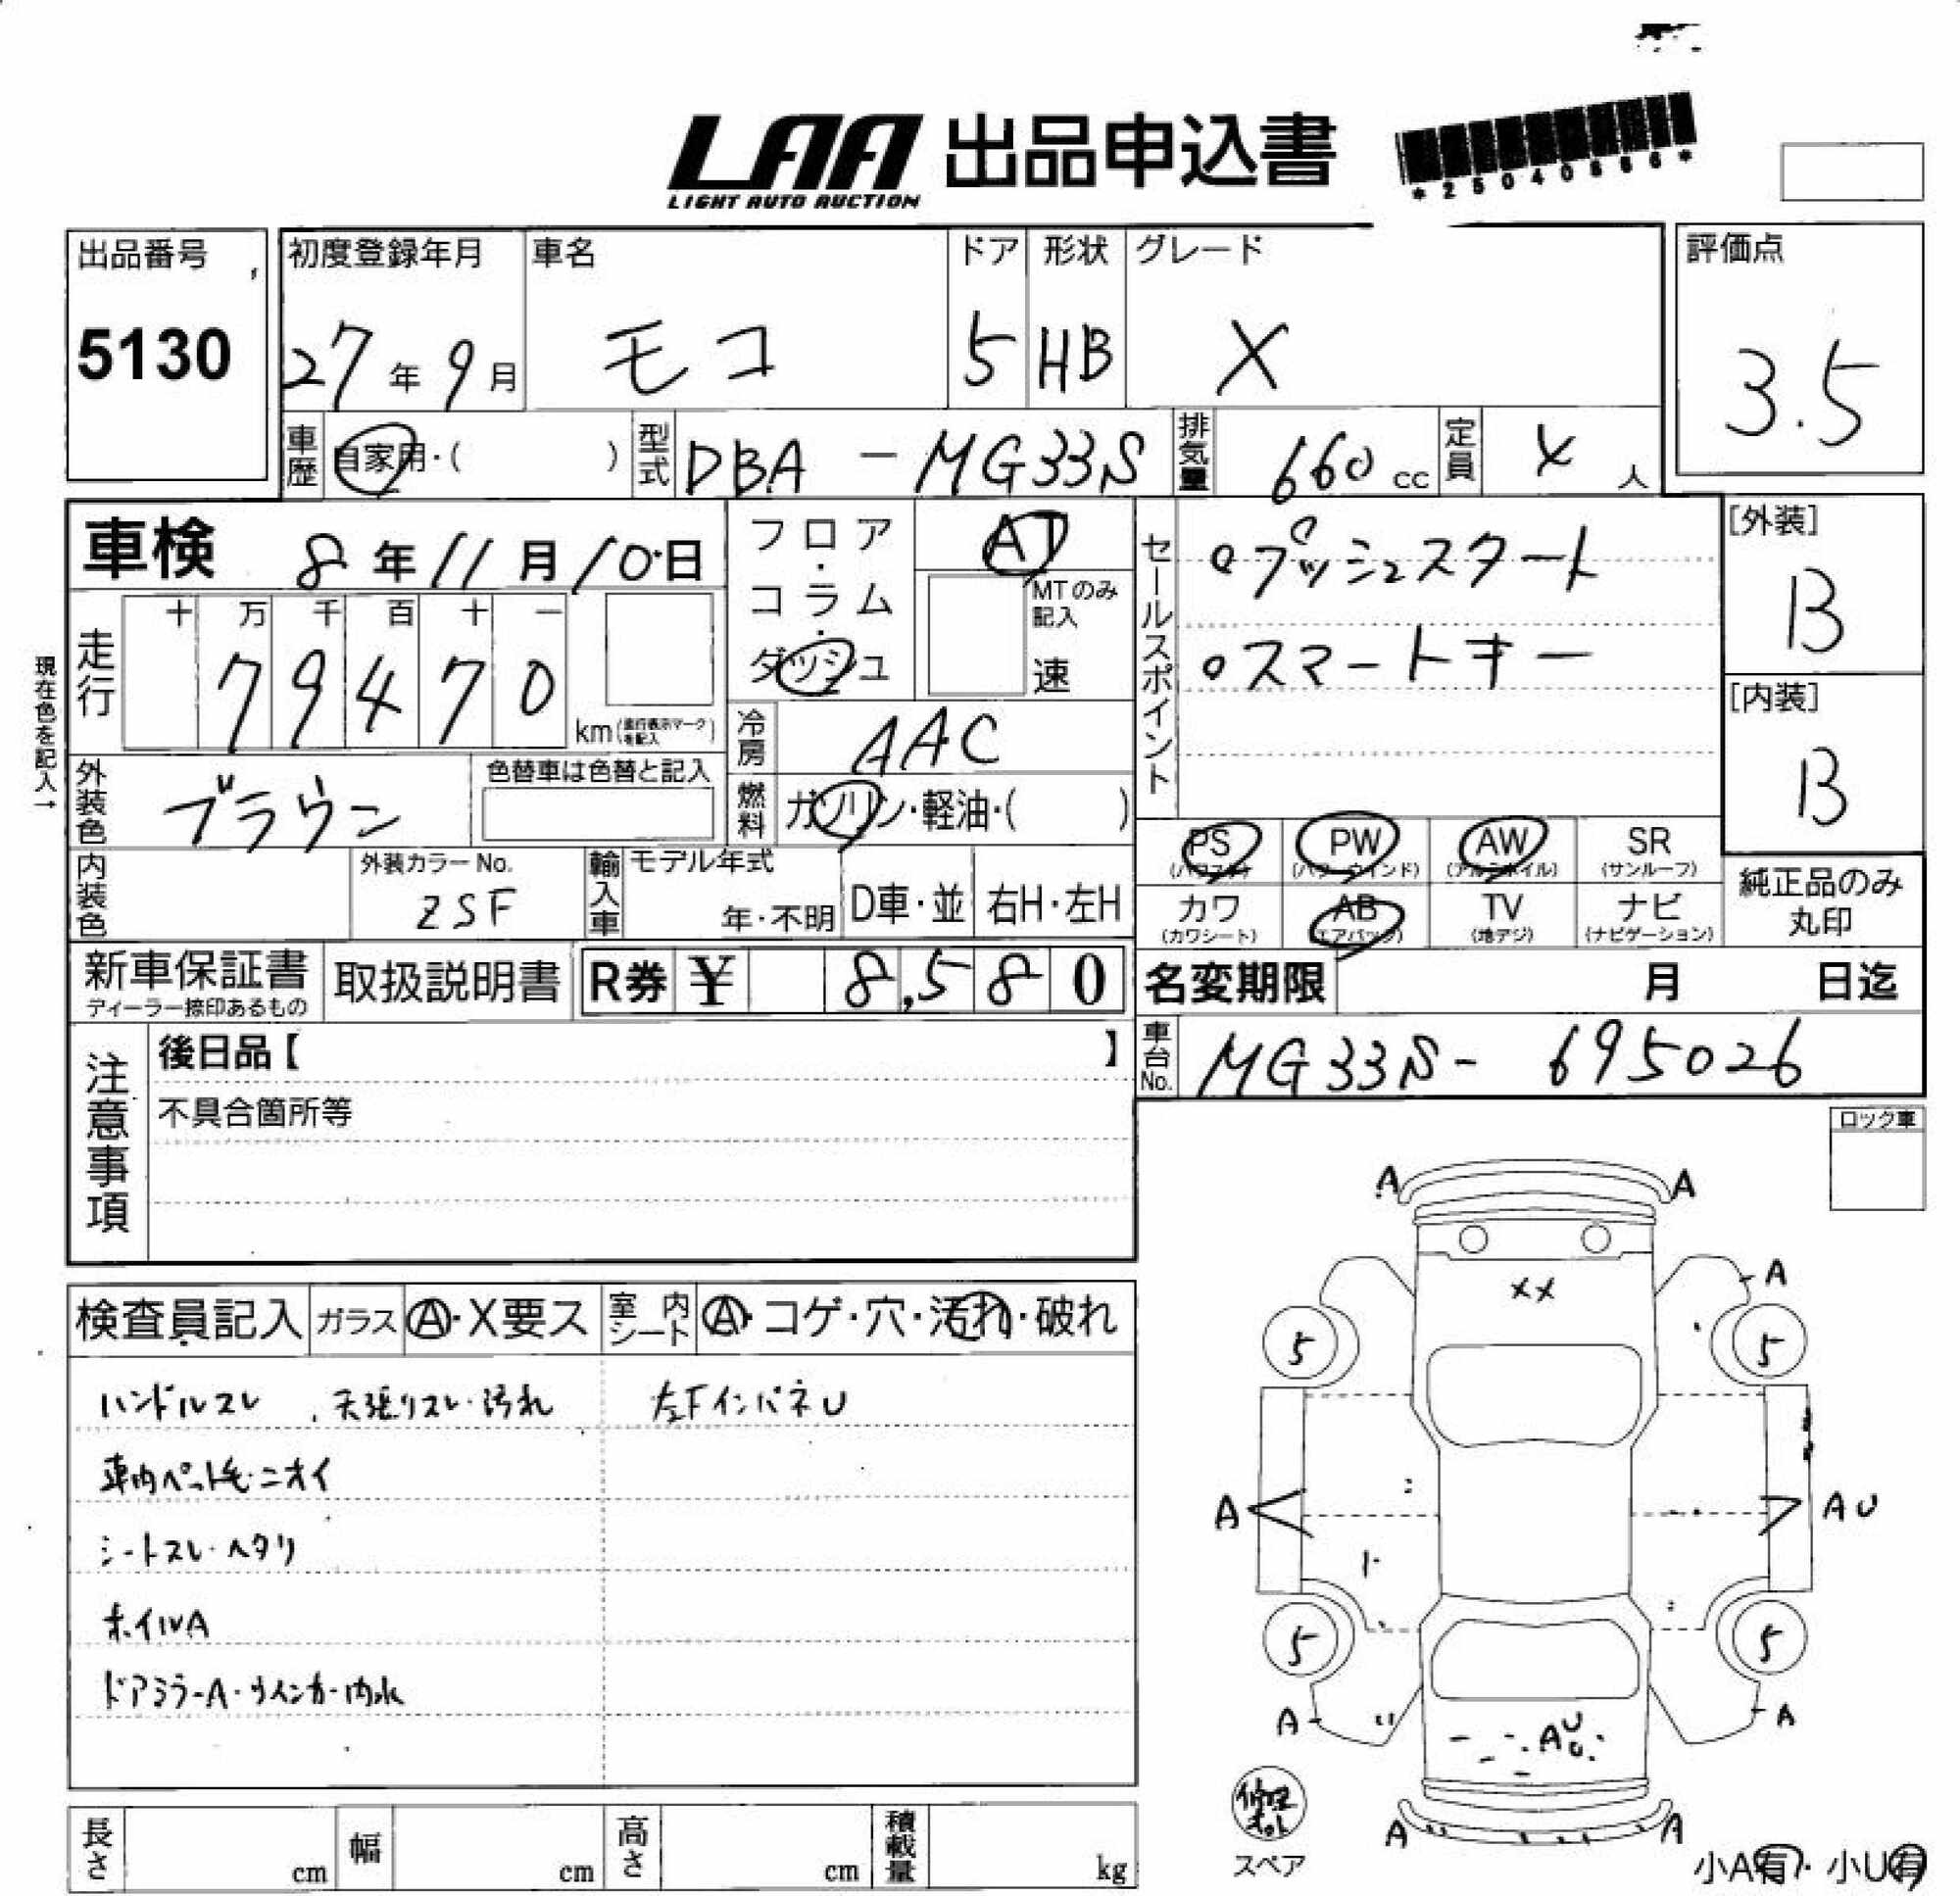 LAA 出品申込書
LIGHT AUTO AUCTION
出品番号
5130
初度登録年月
27年9月
車名
モコ
ドア
5
形状
HB
グレード
X
評価点
3.5
車歴
自家用・( )
型式
DBA-MG33S
排気量
660cc
定員
4人
車検 8年11月10日
フロア・コラム・ダッシュ
AT
MTのみ記入
速
セールスポイント
○プッシュスタート
○スマートキー
[外装]
B
[内装]
B
現在色を記入→
走行
十 万 千 百 十 一
7 9 4 7 0
km(走行表示マークを記入)
冷房
AAC
外装色
ブラウン
色替車は色替と記入
燃料
ガソリン・軽油・( )
PS (パワステ)
PW (パワーウインド)
AW (アルミホイル)
SR (サンルーフ)
カワ (カワシート)
AB (エアバック)
TV (地デジ)
ナビ (ナビゲーション)
純正品のみ丸印
内装色
外装カラーNo.
ZSF
輸入車
モデル年式
年・不明
D車・並
右H・左H
新車保証書
ディーラー捺印あるもの
取扱説明書
R券 ¥ 8,580
名変期限 月 日迄
車台No.
MG33S-695026
注意事項
後日品【 】
不具合箇所等
ロック車
検査員記入
ガラス
A・X要ス
室内シート
A・コゲ・穴・汚れ・破れ
ハンドルスレ 天張りスレ・汚れ 左FインパネU
車内ペット毛・ニオイ
シートスレ・ヘタリ
ホイルA
ドアミラーA・ウインカー内水
A A
A
XX
5 5
A AU
5 5
A A
AU
U
A A
修理キット
スペア
小A有・小U有
長さ cm
幅 cm
高さ cm
積載量 kg